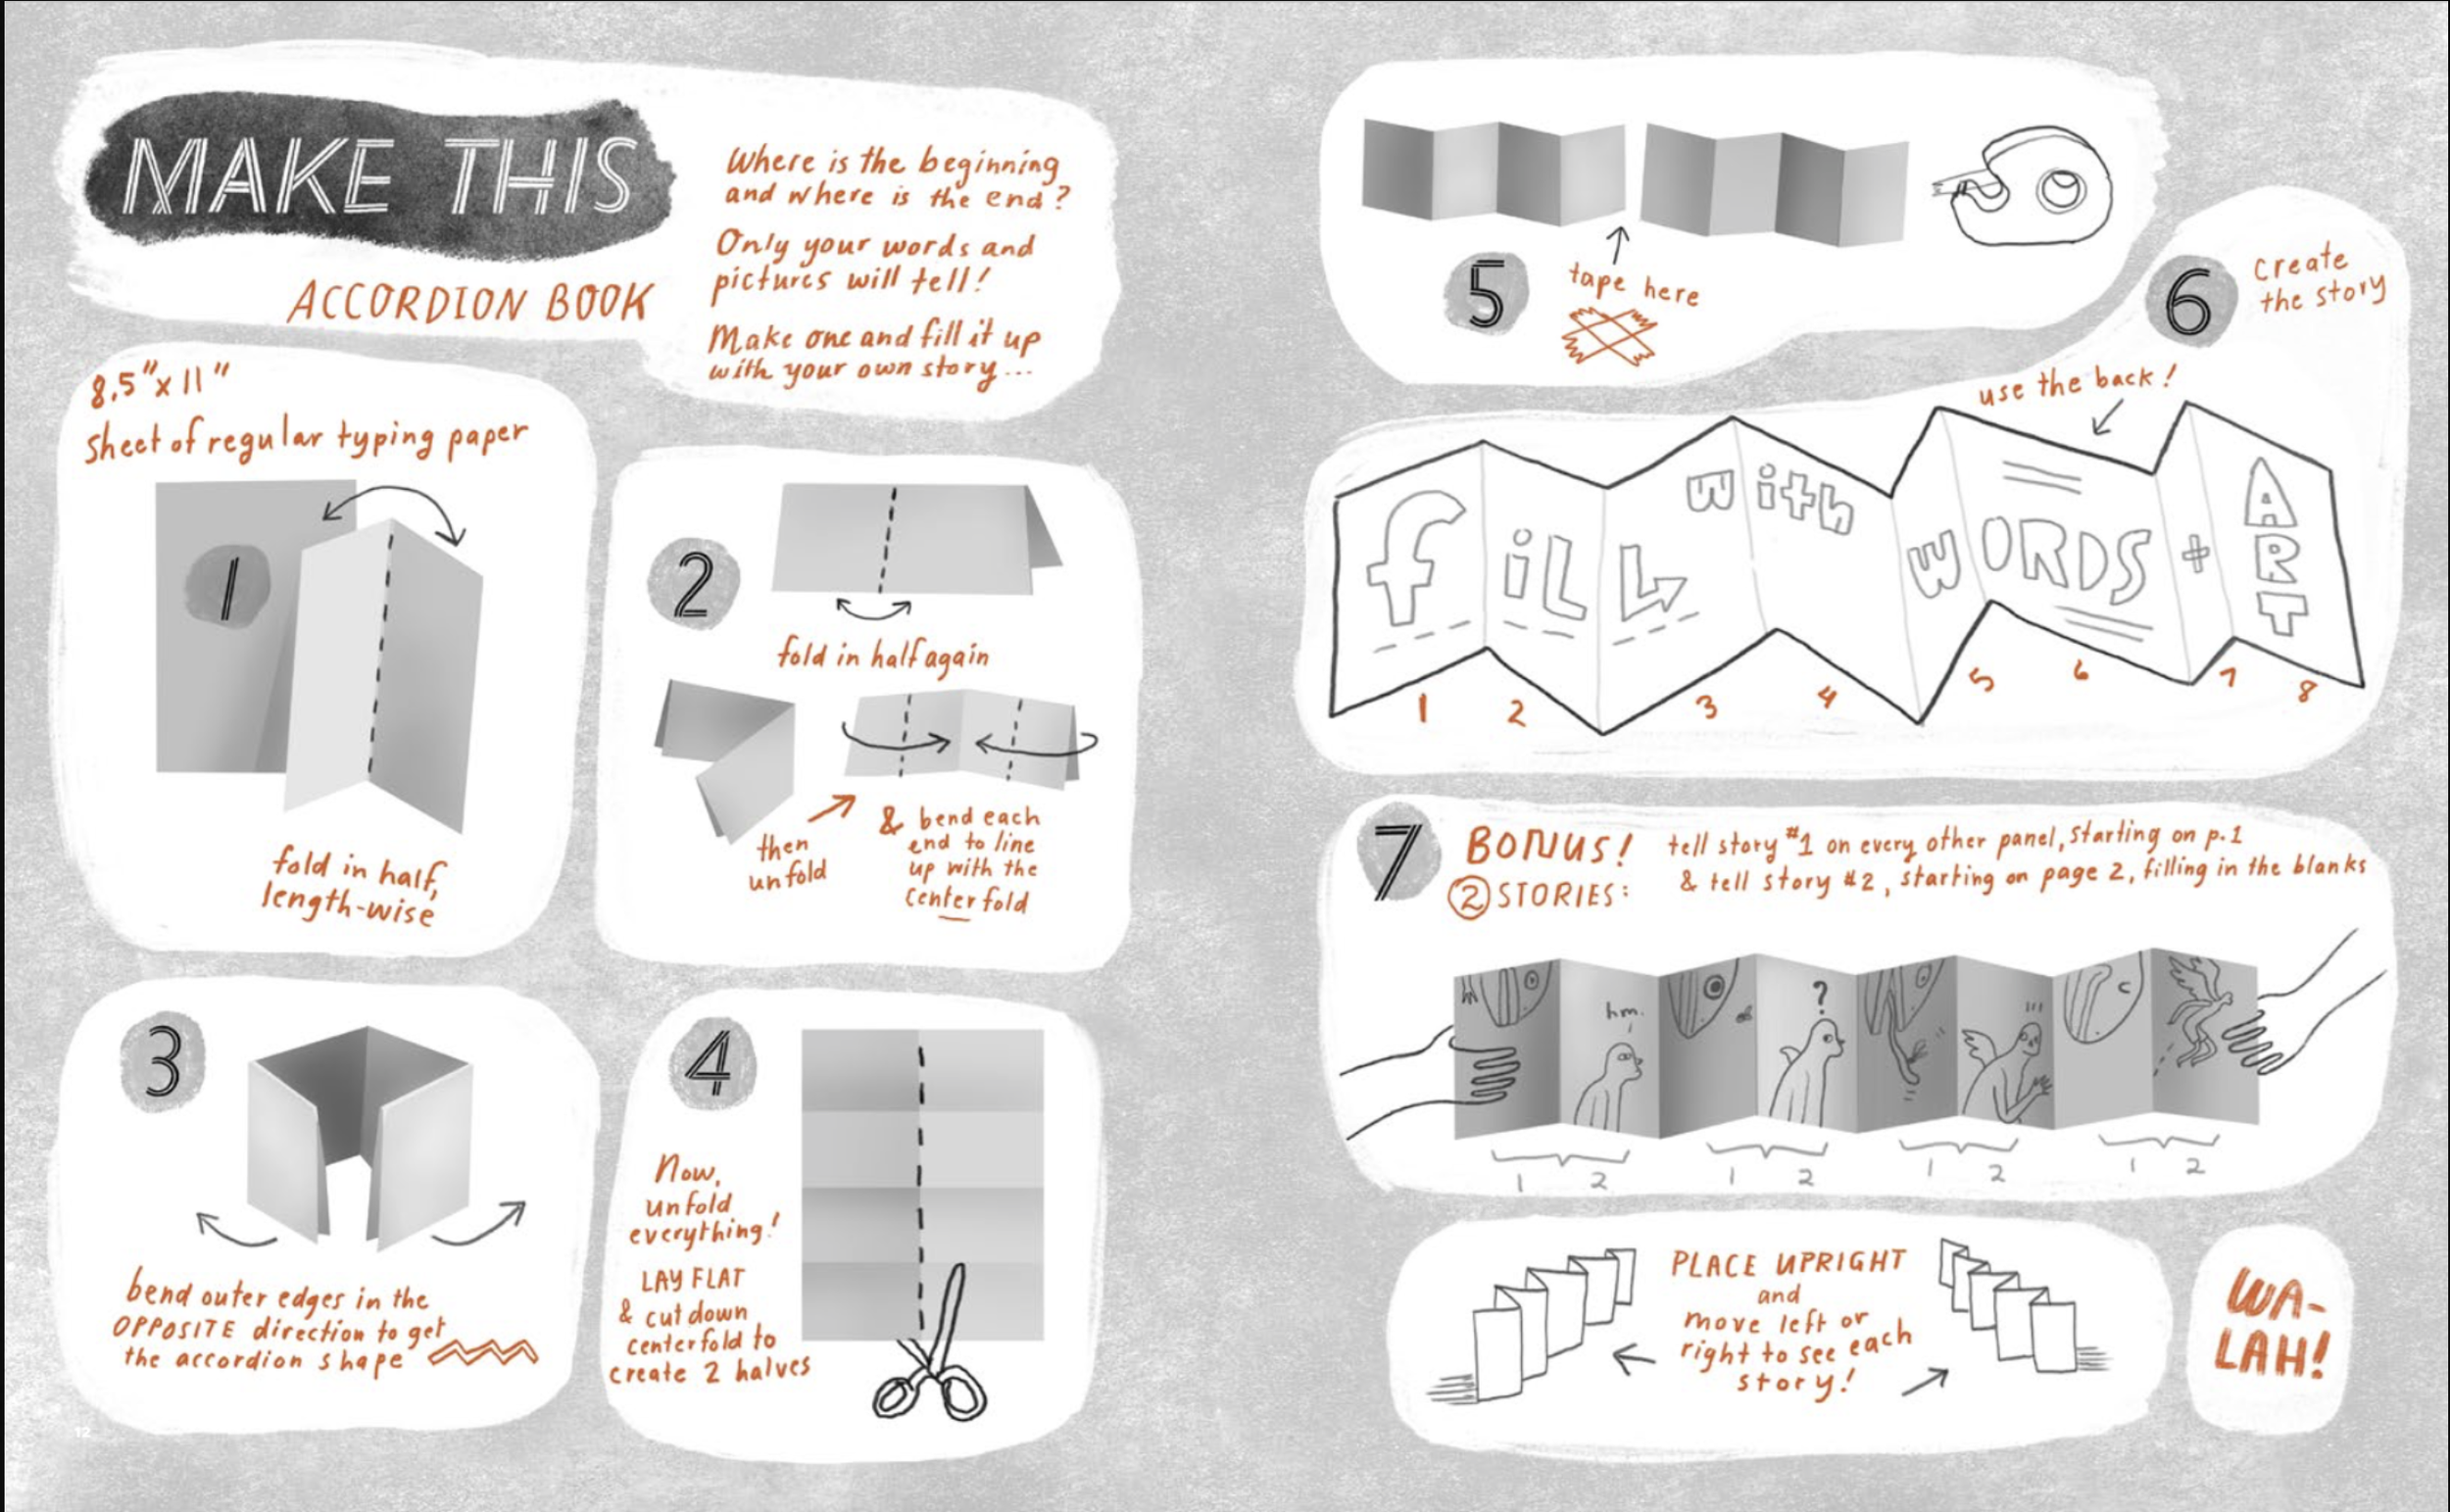 MAKE THIS
ACCORDION BOOK
Where is the beginning
and where is the end?
Only your words and
pictures will tell!
Make one and fill it up
with your own story...
8.5"x 11"
sheet of regular typing paper
1
fold in half,
length-wise
2
fold in half again
then
unfold
& bend each
end to line
up with the
center fold
3
bend outer edges in the
OPPOSITE direction to get
the accordion shape
4
Now,
unfold
everything!
LAY FLAT
& cut down
centerfold to
create 2 halves
12
5
tape here
6
create
the story
use the back!
fiLL with WORDS + ART
1 2 3 4 5 6 7 8
7
BONUS!
2 STORIES:
tell story #1 on every other panel, starting on p.1
& tell story #2, starting on page 2, filling in the blanks
hm.
?
!!!
1 2 1 2 1 2 1 2
PLACE UPRIGHT
and
move left or
right to see each
story!
WA-
LAH!